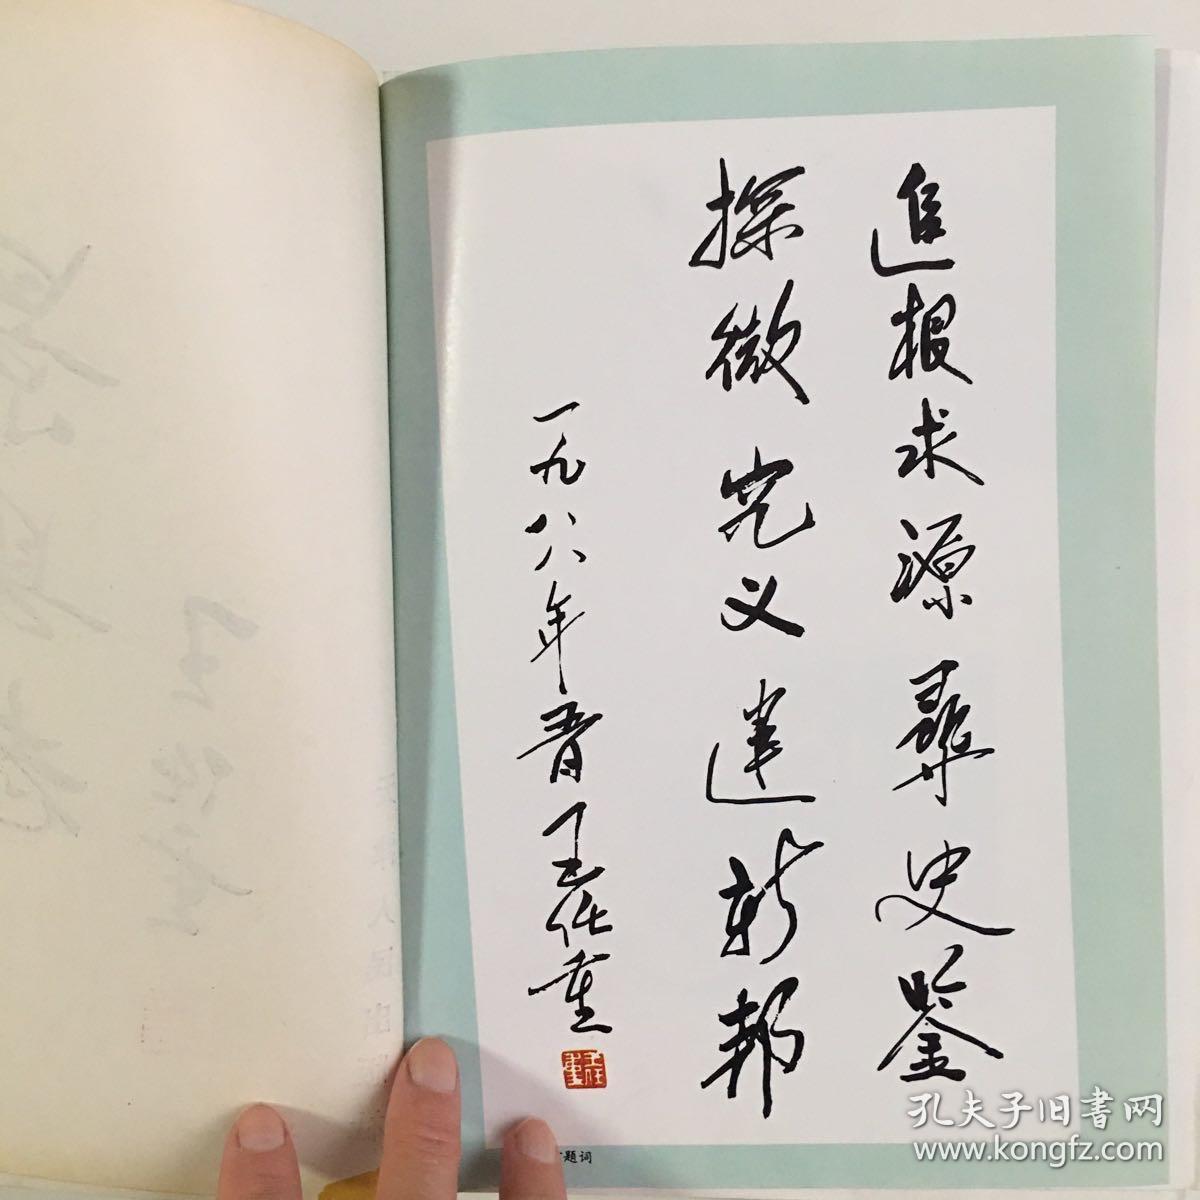 追根求源尋史鉴
探微究义建新邦
一九八八年春王任重
题词
孔夫子旧書网
www.kongfz.com